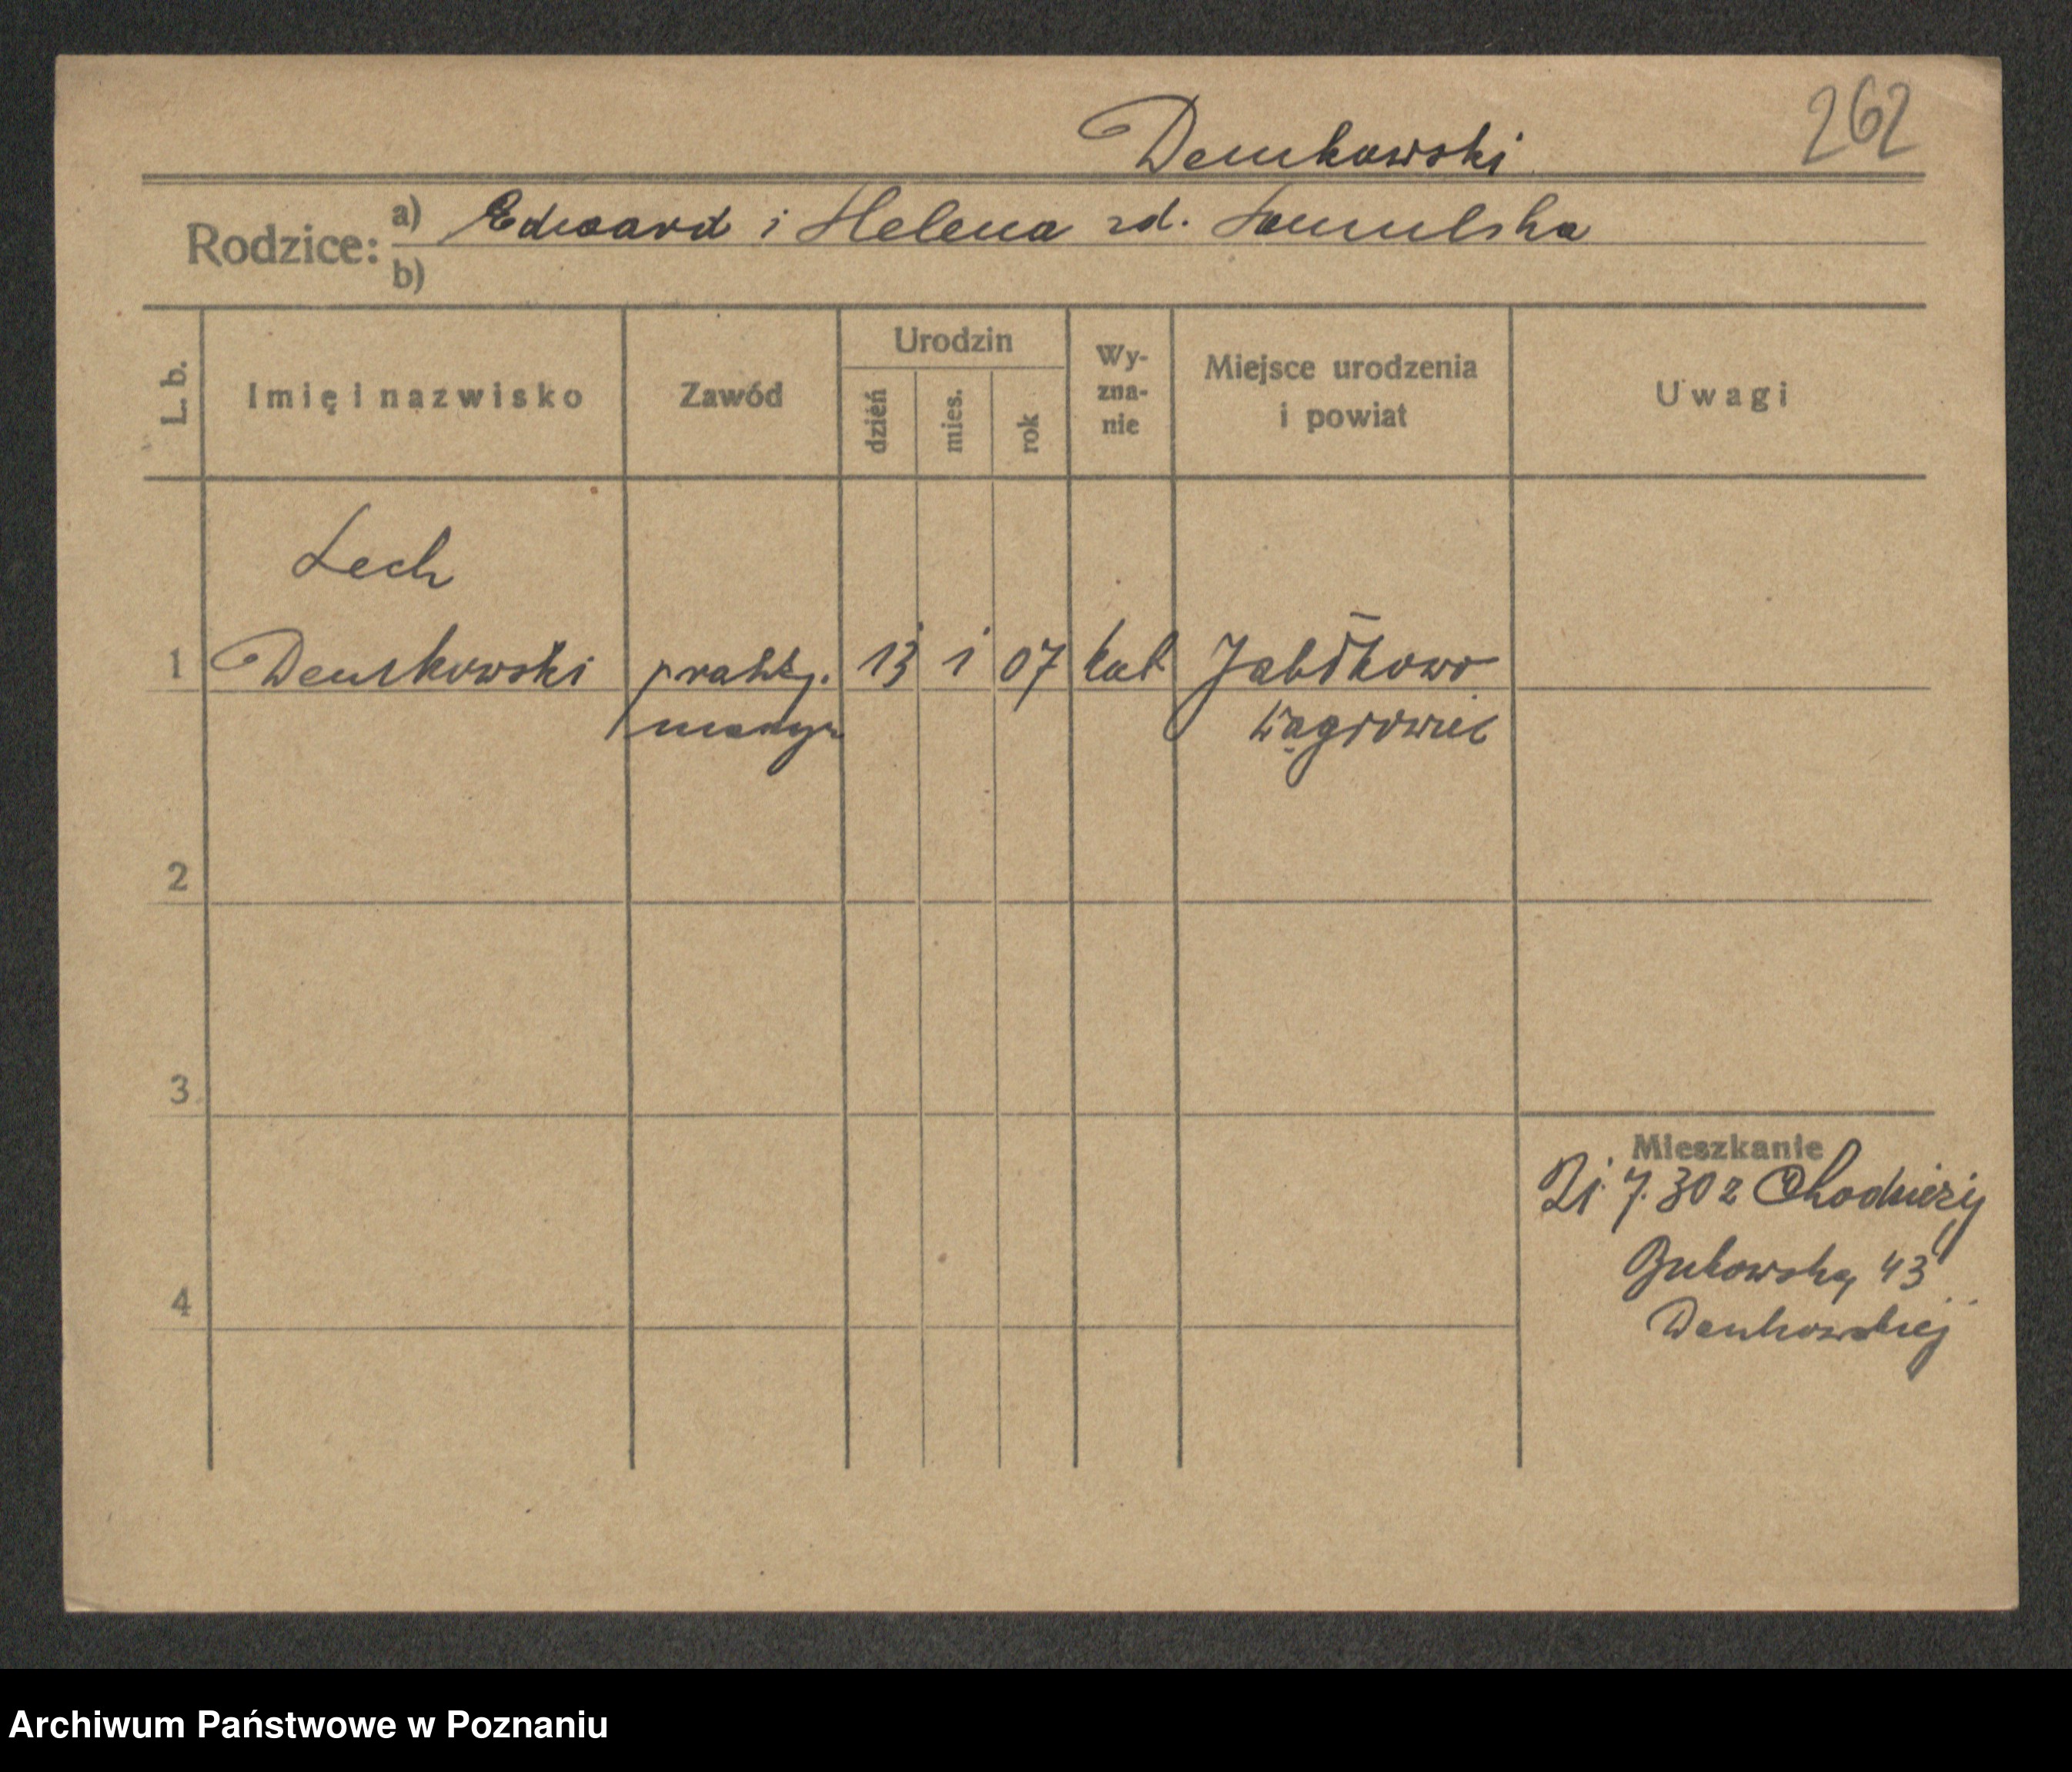 Demkowski
262
Rodzice: a) Edward i Helena zd.
b)
L. b.
Imię i nazwisko
Zawód
Urodzin
dzień
mies.
rok
Wy-
zna-
nie
Miejsce urodzenia
i powiat
Uwagi
Lech
1 Demkowski prakty. 13 1 07 kat Jabłkowo
Wągrowiec
2
3
4
Mieszkanie
21.7.30 z Chodzieży
Bukowska 43
Archiwum Państwowe w Poznaniu